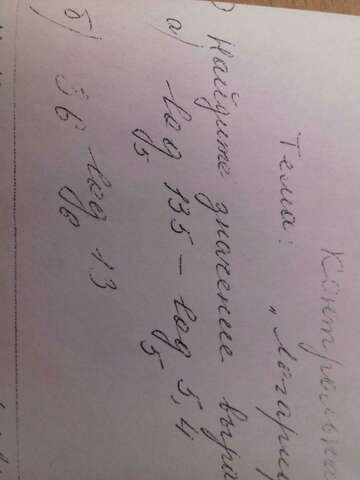 Контрольна
Тема: „Логариф
) Найдите значение выра
а) log₅ 135 – log₅ 5,4
б) 36 log₆ 13